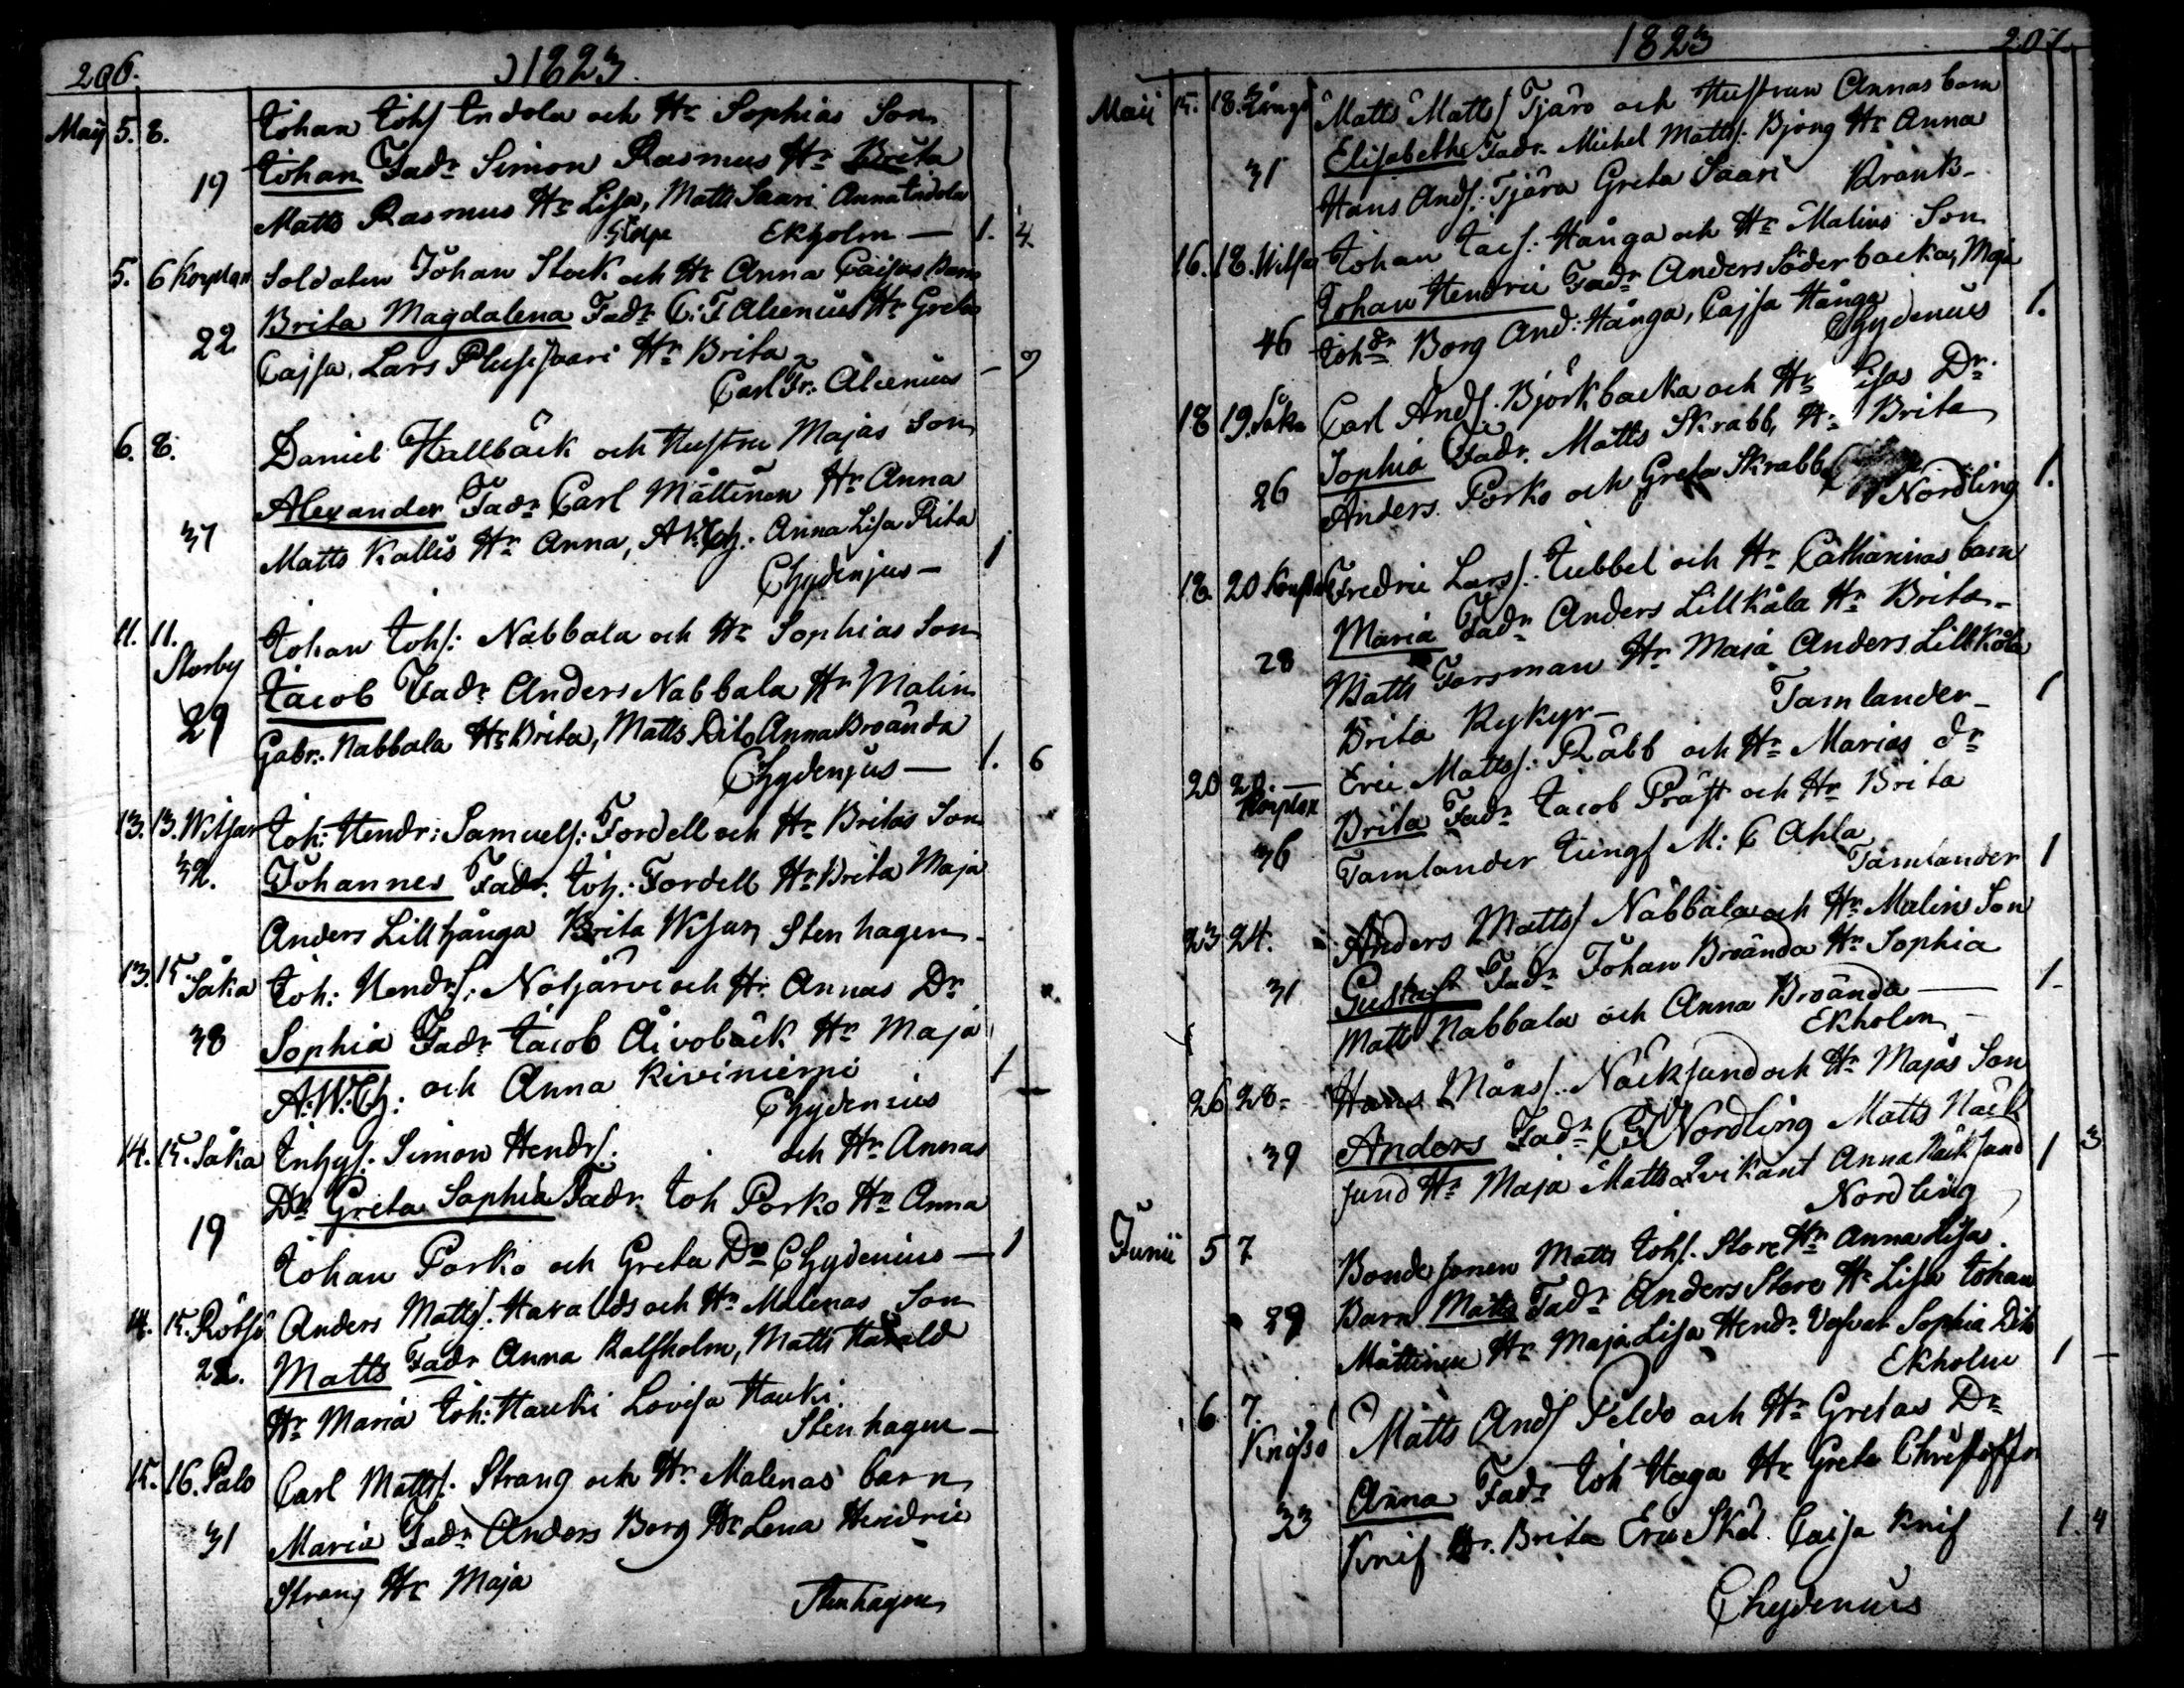 206. 1823.
Maij 5. 8. Johan Johs Indola och Hr Sophias Son
Johan Fadr Simon Rasmus Hr Brita
19 Matts Rasmus Hr Lisa, Matts Saari Anna Indola
Ekholm — 1. 4.
5. 6 Korplax Soldaten Johan Stock och Hr Anna Caisas Barn
Brita Magdalena Fadr C: F Alcenius Hr Greta
22 Cajsa, Lars Plussisaari Hr Brita
Carl Fr: Alcenius —
6. 8. Daniel Hallbäck och Hustru Majas Son
Alexander Fadr Carl Måttinen Hr Anna
37 Matts Kallis Hr Anna, A W Ch: Anna Lisa Rita
Chydenjus — 1
11. 11. Johan Johs: Nabbala och Hr Sophias Son
Storby
Jacob Fadr Anders Nabbala Hr Malin
29 Gabr: Nabbala Hr Brita, Matts Dito Anna Broända
Chydenjus — 1. 6
13. 13. Witsar Joh: Hendr: Samuels: Fordell och Hr Britas Son
32. Johannes Fadr. Joh: Fordell Hr Brita Maja
Anders Lillhånga Brita Witsar Stenhagen
13. 15 Såka Joh: Hendrs: Nötjärvi och Hr Annas Dr
38 Sophia Fadr Jacob Åivobäck Hr Maja
A: W: Ch: och Anna Kiviniemi 1
Chydenius —
14. 15. Såka Inhys. Simon Hendrs. och Hr Annas
Dr Greta Sophia Fadr Joh Porko Hr Anna
19
Johan Porko och Greta Do Chydenius — 1
14. 15. Rötsö Anders Matts: Haralds och Hr Malenas Son
22. Matts Fadr Anna Kalfholm, Matts Harald
Hr Maria Joh: Hauki Lovisa Hauki
Stenhagen —
15. 16. Palo Carl Matts: Strang och Hr Malenas barn
31 Maria Fadr Anders Borg Hr Lena Hindric
Strang Hr Maja
Stenhagen
1823 207.
Maij 15. 18. Långö Matts Matts Tjäro och Hustrun Annas barn
Elisabetha Fadr. Michel Matts: Bjong Hr Anna
31 Hans Ands: Tjäro Greta Saari Krank —
16. 18. Witsar Johan Jacs: Hånga och Hr Malins Son
Johan Henric Fadr Anders Söderbacka, Maja
46 Johdr Borg And: Hånga, Cajsa Hånga
Chydenius 1.
18 19. Såka Carl Ands: Björkbacka och Hr Lisas Dr
Sophia Fadr. Matts Skrabb, Hr Brita
26 Anders Porko och Greta Skrabb
Nordling 1.
18. 20 Korplax Fredric Lars: Jubbel och Hr Catharinas barn
Maria Fadr Anders Lillkåla Hr Brita —
28 Matts Forsman Hr Maja Anders Lillkåla
Brita Kykyr — Tamlander — 1
20 20. — Eric Matts: Räbb och Hr Marias dr
Korplax
Brita Fadr Jacob Präst och Hr Brita
36 Tamlander Jungf M: C Ahla
Tamlander 1
23 24. Anders Matts Nabbala och Hr Malins Son
31 Gustaf Fadr Johan Broända Hr Sophia
Matts Nabbala och Anna Broända — 1 —
Ekholm —
26 28 — Hans Måns: Näcksund och Hr Majas Son
39 Anders Fadr C Nordling Matts Näck
sund Hr Maja Matts Qvikant Anna Näcksund 1 3
Nordling
Junii 5 7 Bondesonen Matts Johs. Store Hr Anna Lisa
29 Barn Matts Fadr Anders Store Hr Lisa Johan
Måttinen Hr Maja Lisa Hendr. Sophia Dito
Ekholm 1 —
6 7. Matts Ands Peldo och Hr Gretas Dr
Knifsö
Anna Fadr Joh Haga Hr Greta Christoffer
33 Knif Hr. Brita Eric Skul Caisa Knif 1. 4
Chydenius